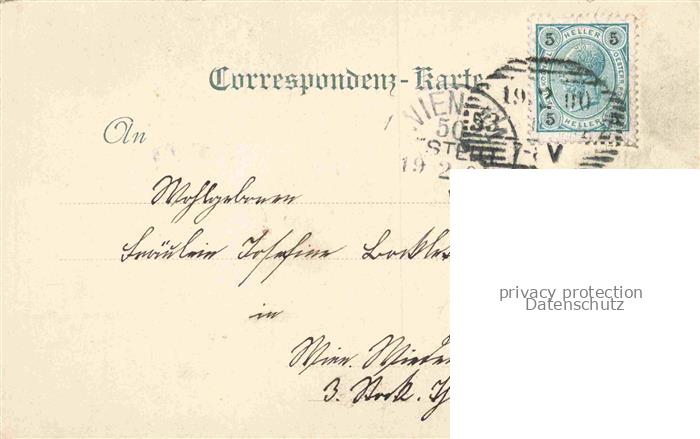 5 HELLER 5
Correspondenz-Karte
19 2 00
WIEN
50
53
5 HELLER 5
An
BESTELLT
V
19 2
Wohlgeboren
Fräulein Josefine
in
privacy protection
Datenschutz
Wien. Wieden
3. Stock.